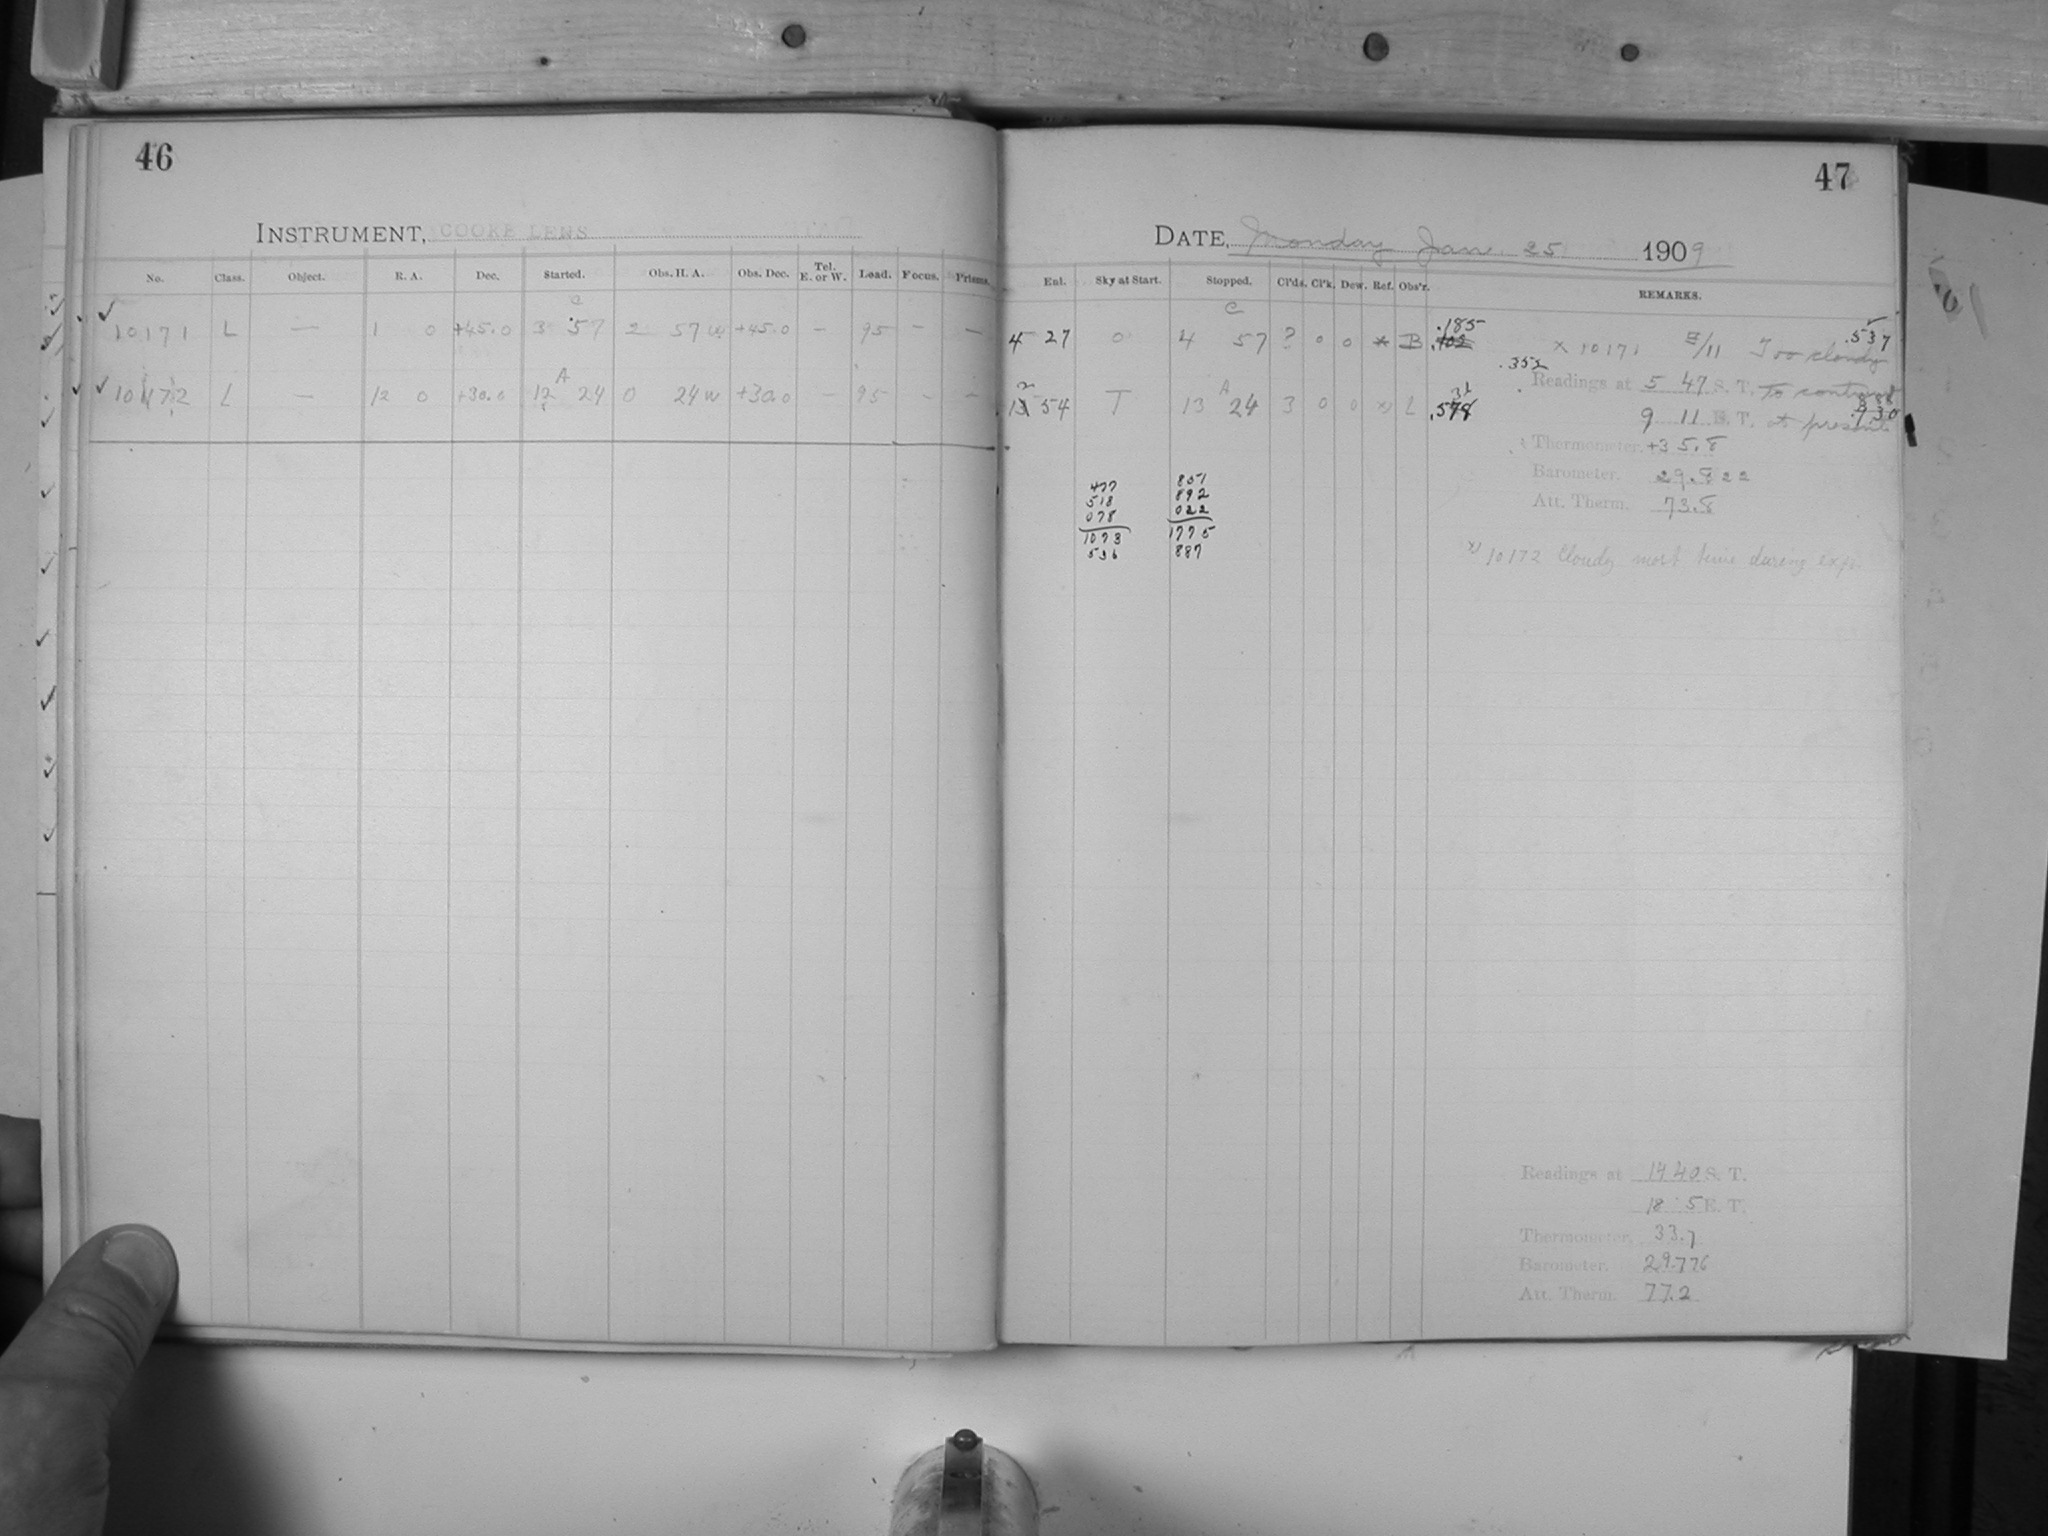 46
INSTRUMENT, COOKE LENS
No. Class. Object. R. A. Dec. Started. Obs. H. A. Obs. Dec. Tel. E. or W. Lead. Focus. Prisms.
C
10171 L — 1 0 +45.0 3 57 2 57 w +45.0 – 95 – –
A
10172 L — 12 0 +30.0 12 24 0 24 w +30.0 – 95 – –
47
DATE, Monday Jan. 25 1909
Ent. Sky at Start. Stopped. Cl'ds. Cl'k. Dew. Ref. Obs'r. REMARKS.
C
4 27 0 4 57 ? 0 0 x B .185
x 10171 E/11 Too cloudy .537
.352
Readings at 5 47 S. T. to continue
A
54 T 13 24 3 0 0 x) L
9 11 E. T. at present
Thermometer. +35.8
Barometer. 29.822
Att. Therm. 73.8
477 857
518 892
078 022
1073 1775
536 887
x) 10172 Cloudy most time during exp.
Readings at 14 40 S. T.
18 5 E. T.
Thermometer. 33.7
Barometer. 29.776
Att. Therm. 77.2